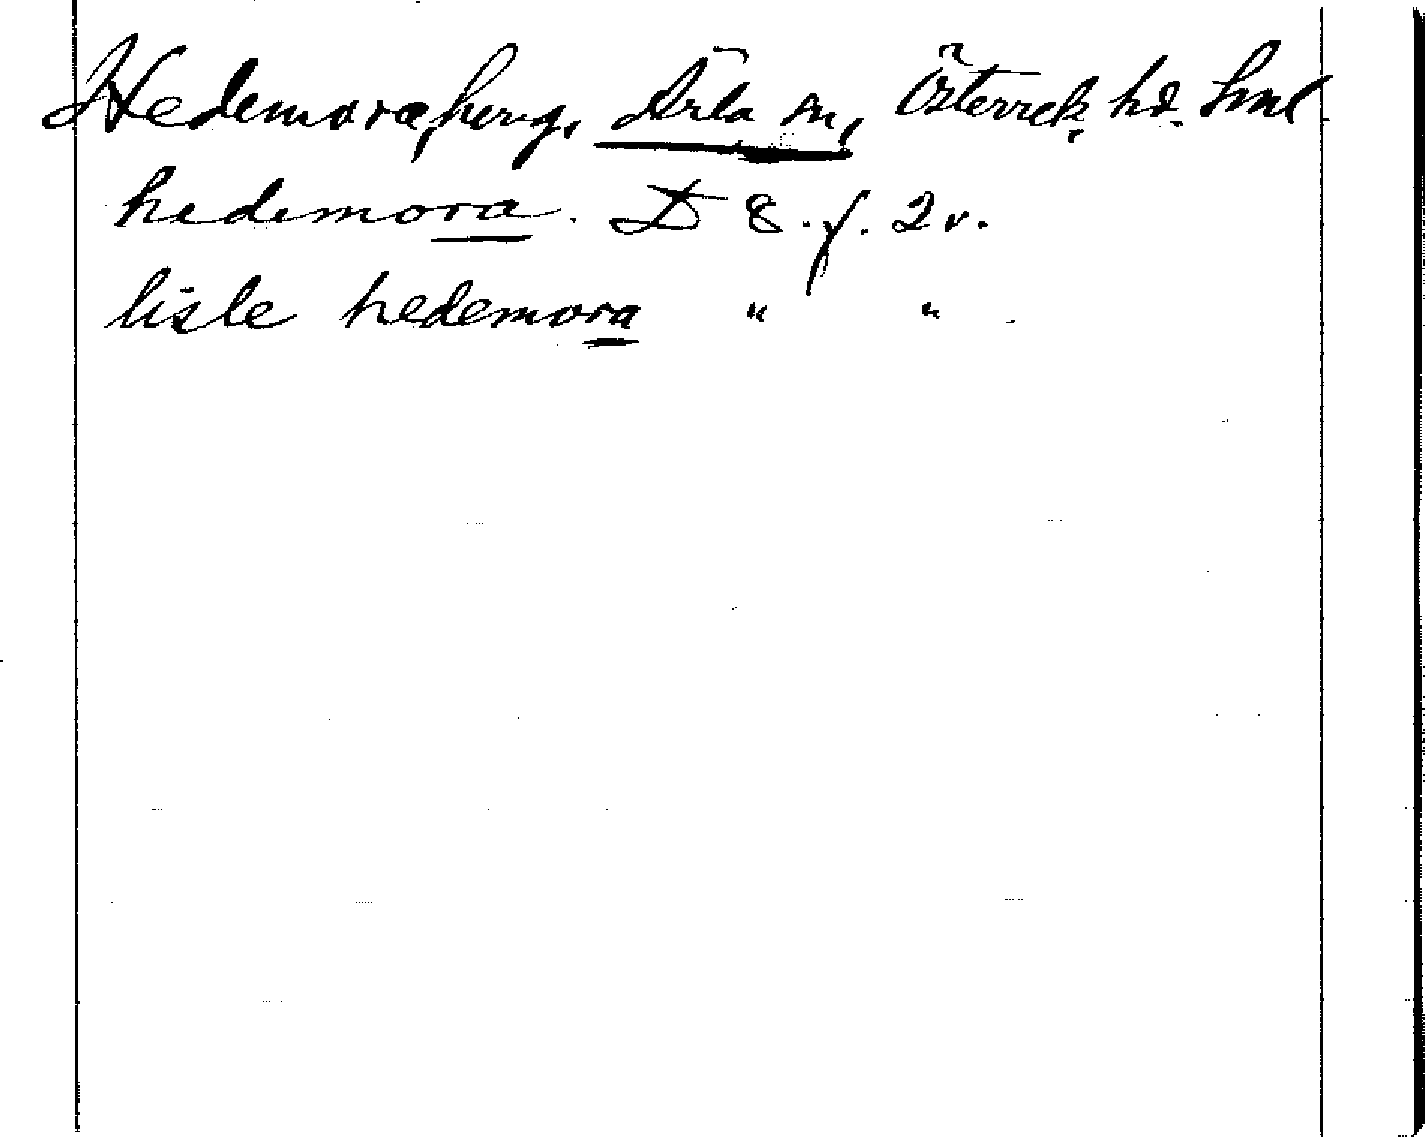 Hedemoraberg, Ärla sn, Österrek. hd. Sml
hedemora. D 8. f. 2 v.
lisle hedemora " " .